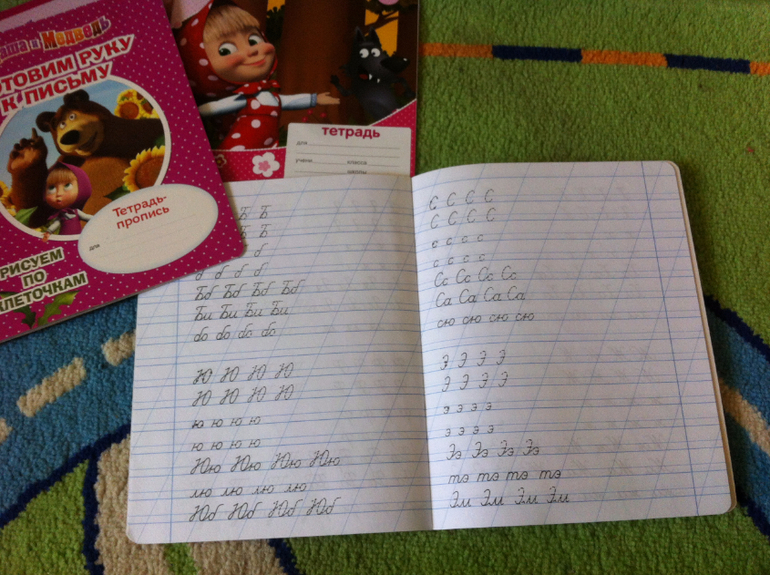 Маша и Медведь
ГОТОВИМ РУКУ
К ПИСЬМУ
Тетрадь-
пропись
для
РИСУЕМ
ПО
КЛЕТОЧКАМ
тетрадь
для
учени класса
школы
Б Б
Б Б
б б
б б б б
Бб Бб Бб Бб
Би Би Би Би
бо бо бо бо
Ю Ю Ю Ю
Ю Ю Ю Ю
ю ю ю ю
ю ю ю ю
Юю Юю Юю Юю
лю лю лю лю
Юб Юб Юб Юб
С С С С
С С С С
с с с с
с с с с
Сс Сс Сс Сс
Са Са Са Са
сю сю сю сю
Э Э Э Э
Э Э Э Э
э э э э
э э э э
Ээ Ээ Ээ Ээ
тэ тэ тэ тэ
Эм Эм Эм Эм